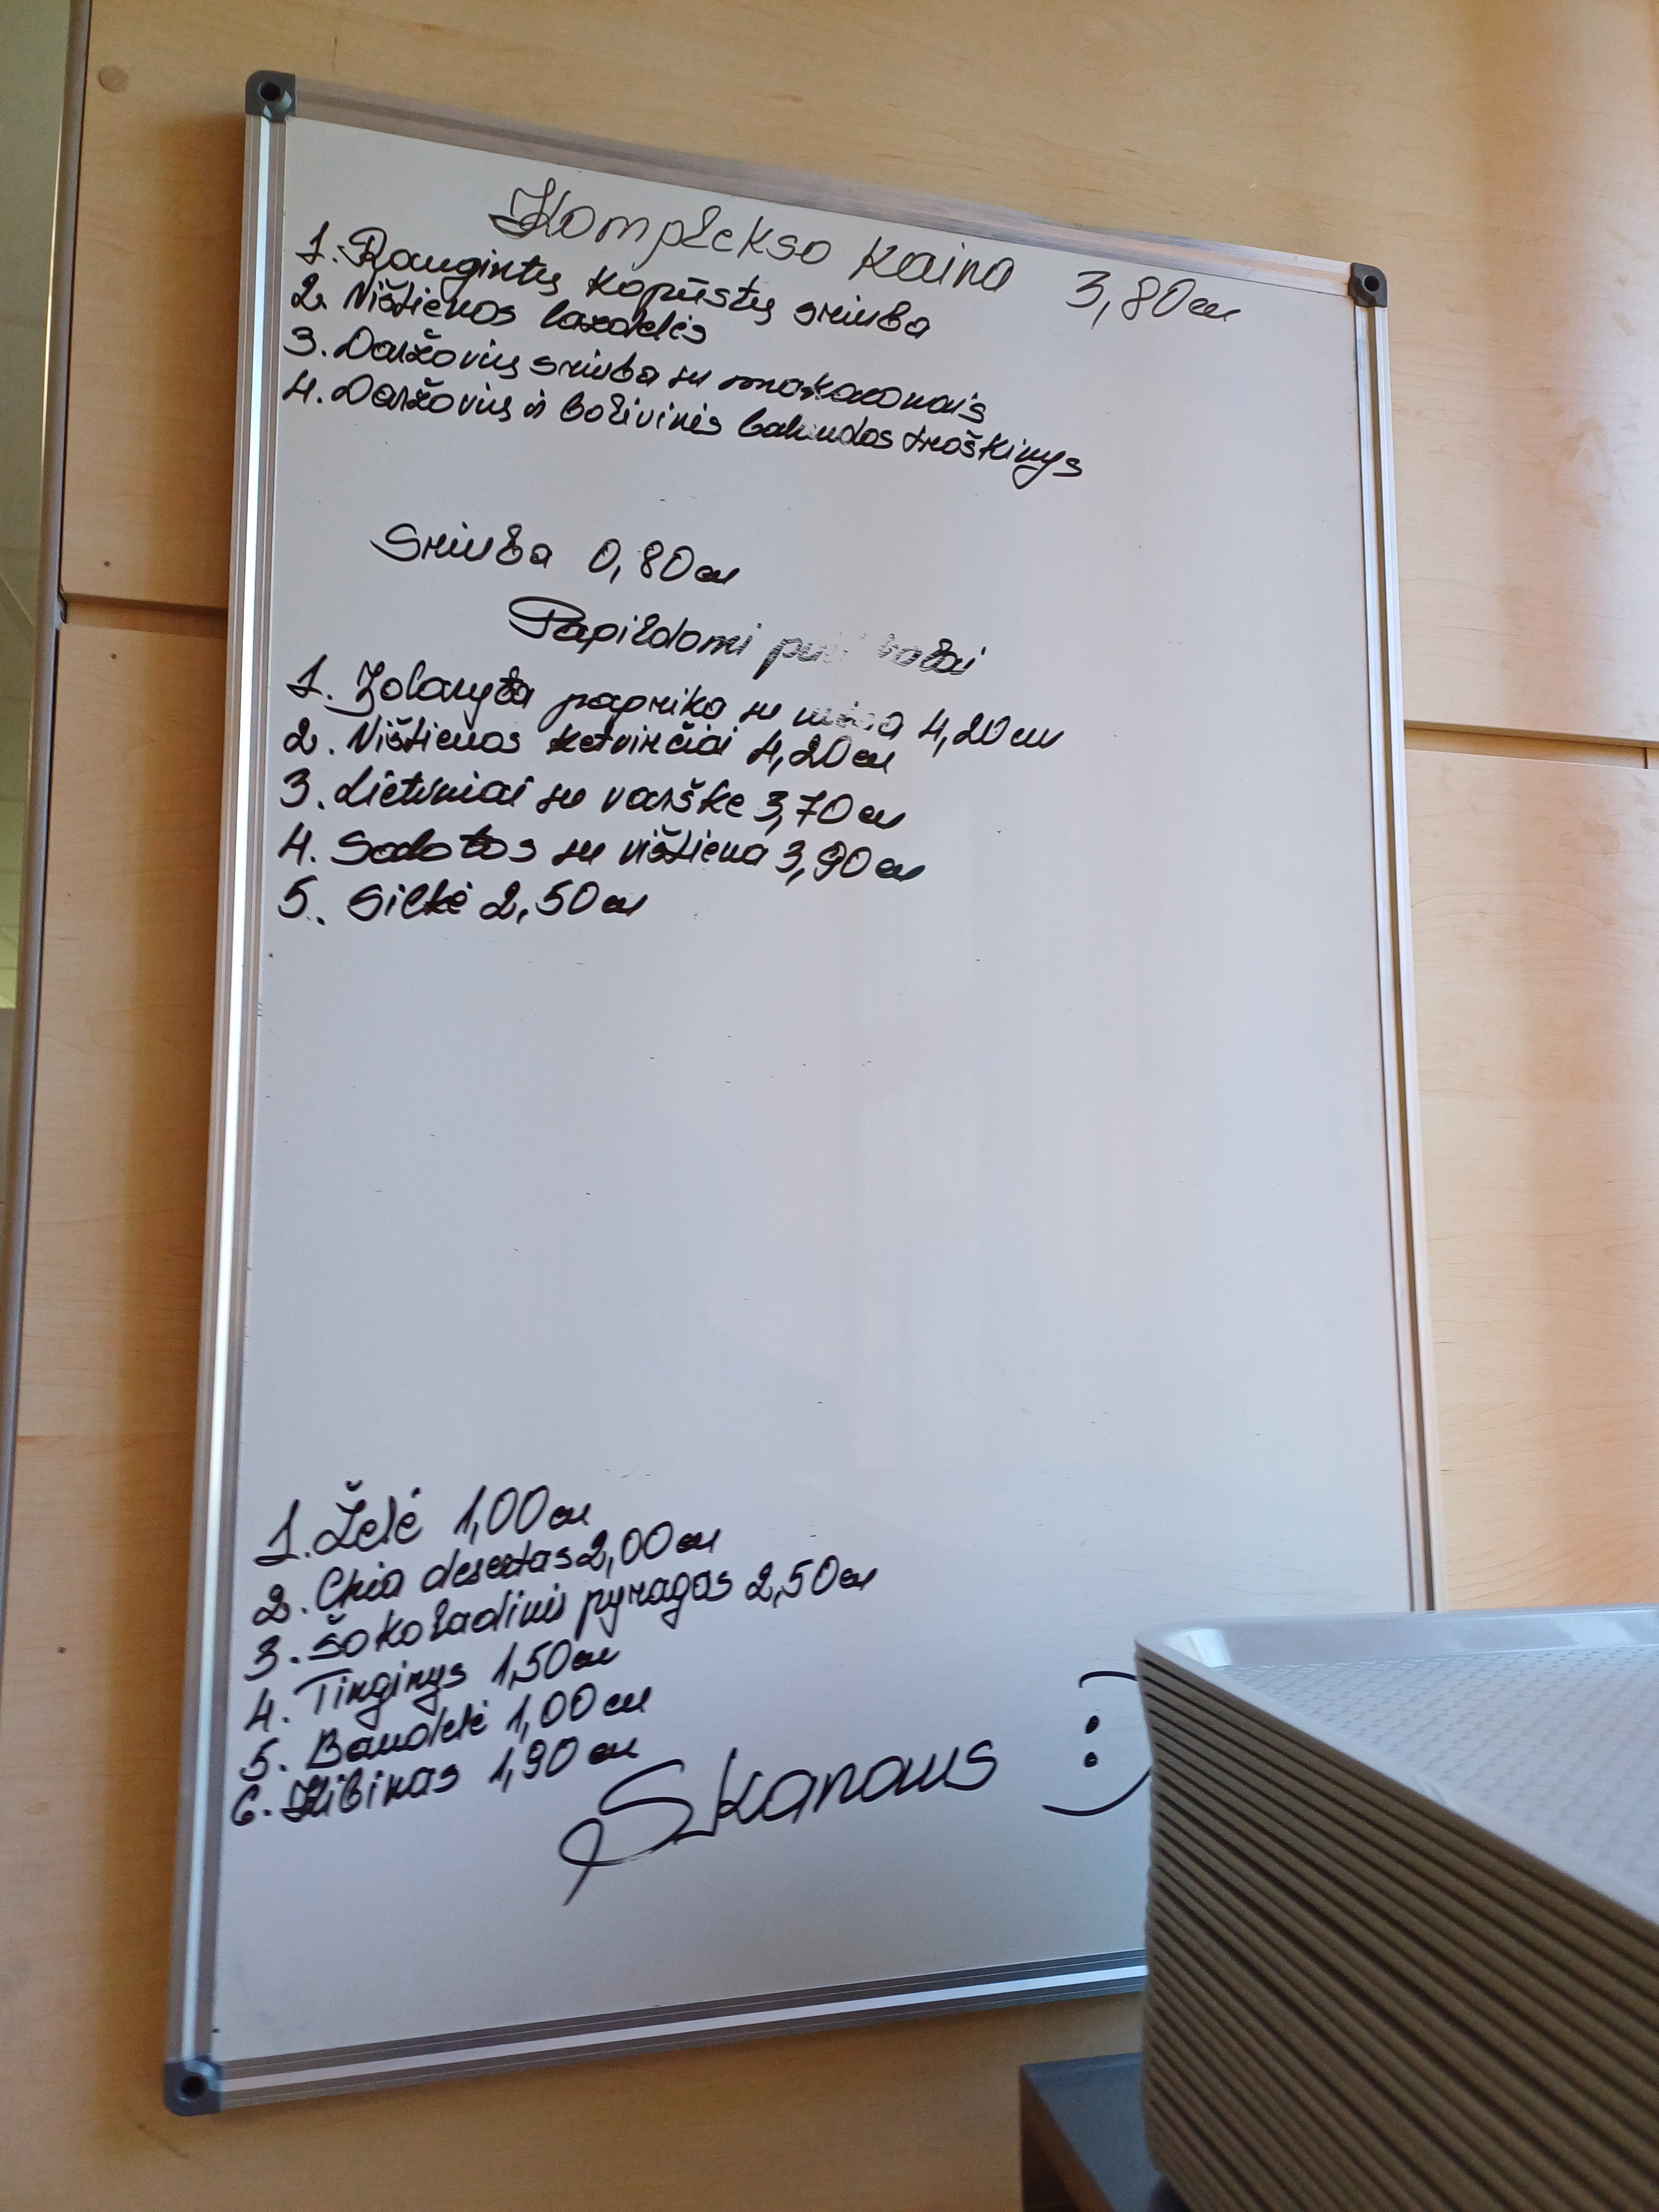 Komplekso kaina 3,80 eu
1. Raugintų kopūstų sriuba
2. Vištienos lazdelės
3. Daržovių sriuba su makaronais
4. Daržovių ir bolivinės balandos troškinys
Sriuba 0,80 eu
Papildomi
1. Įdaryta paprika su 4,20 eu
2. Vištienos ketvirčiai 4,20 eu
3. Lietiniai su varške 3,70 eu
4. Salotos su vištiena 3,90 eu
5. Silkė 2,50 eu
1. Želė 1,00 eu
2. Chia desertas 2,00 eu
3. Šokoladinis pyragas 2,50 eu
4. Tinginys 1,50 eu
5. Bandelė 1,00 eu
6. Kibinas 1,90 eu
Skanaus :)